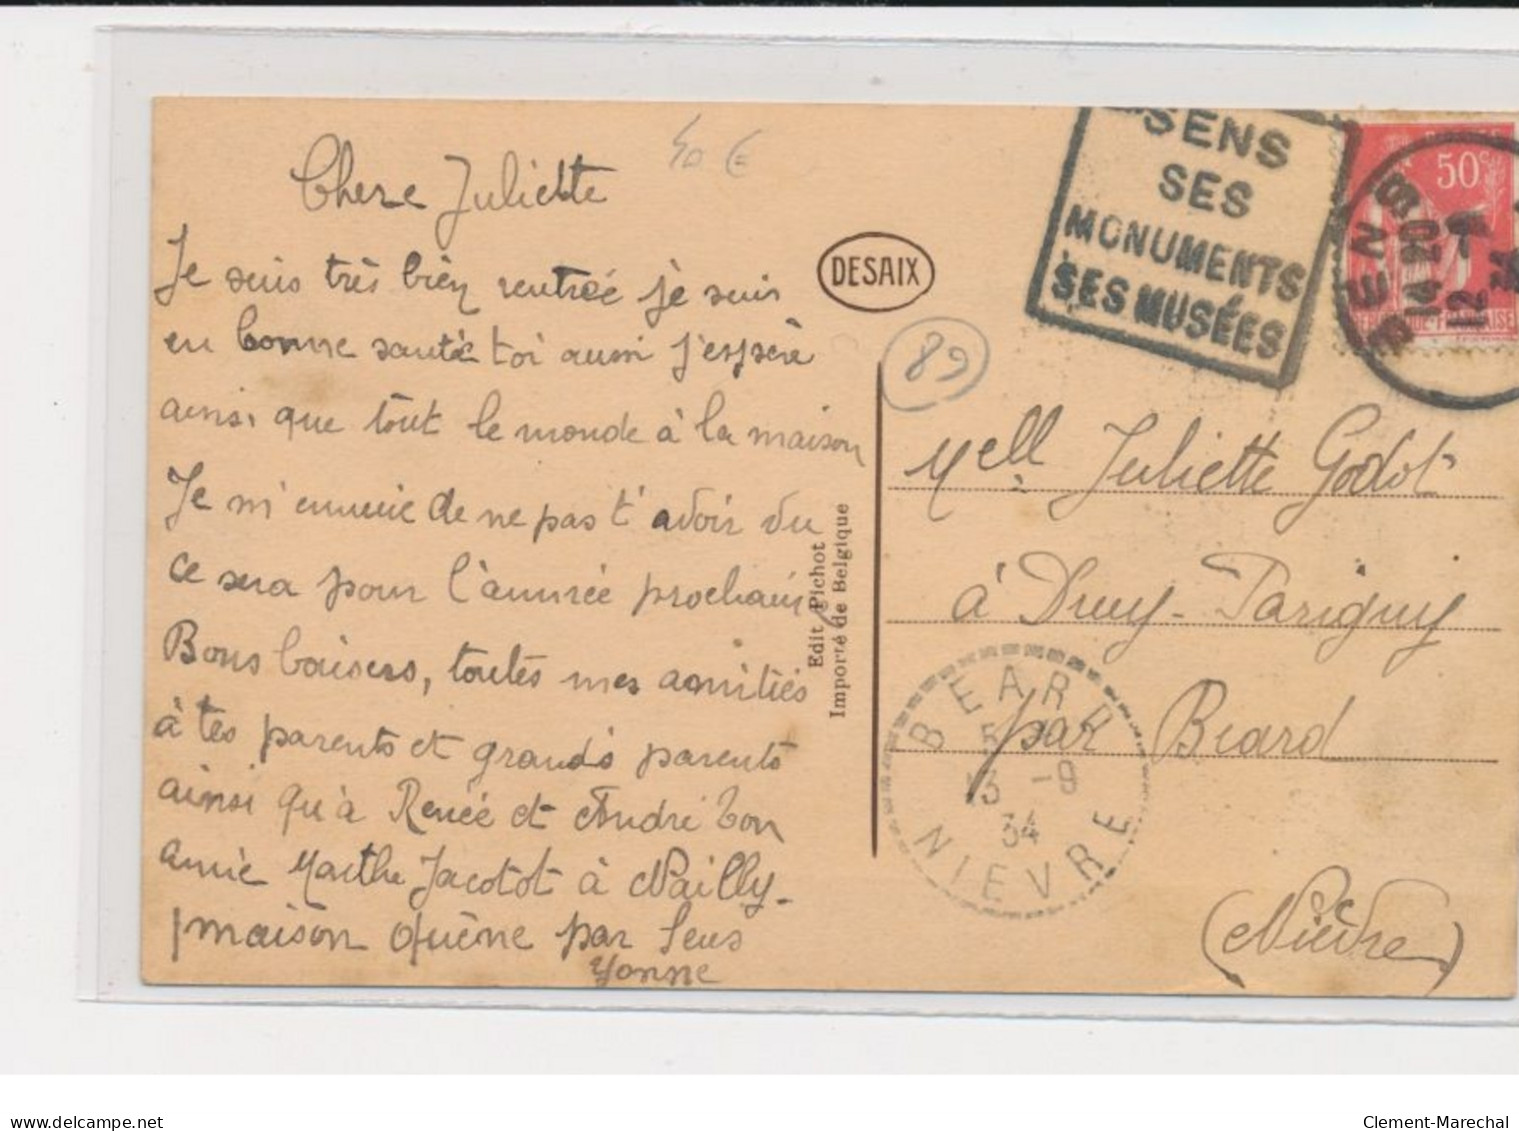 40 €
Chere Juliette
Je suis très bien rentrée je suis
en bonne santé toi aussi j'espère
ainsi que tout le monde à la maison
Je m'ennuie de ne pas t'avoir vu
ce sera pour l'année prochain
Bons baisers, toutes mes amitiés
à tes parents et grands parents
ainsi qu'à Renée et André ton
amie Marthe Jacotot à Nailly-
maison Quène par Sens
Yonne
DESAIX
89
Edit Pichot
Importé de Belgique
SENS
SES
MONUMENTS
SES MUSÉES
50c
SENS
14 20
12 -9
34
Mell Juliette Godot
à Druy-Parigny
par Béard
(Nièvre)
BEARD
13 -9
34
NIEVRE
delcampe.net
Clement-Marechal